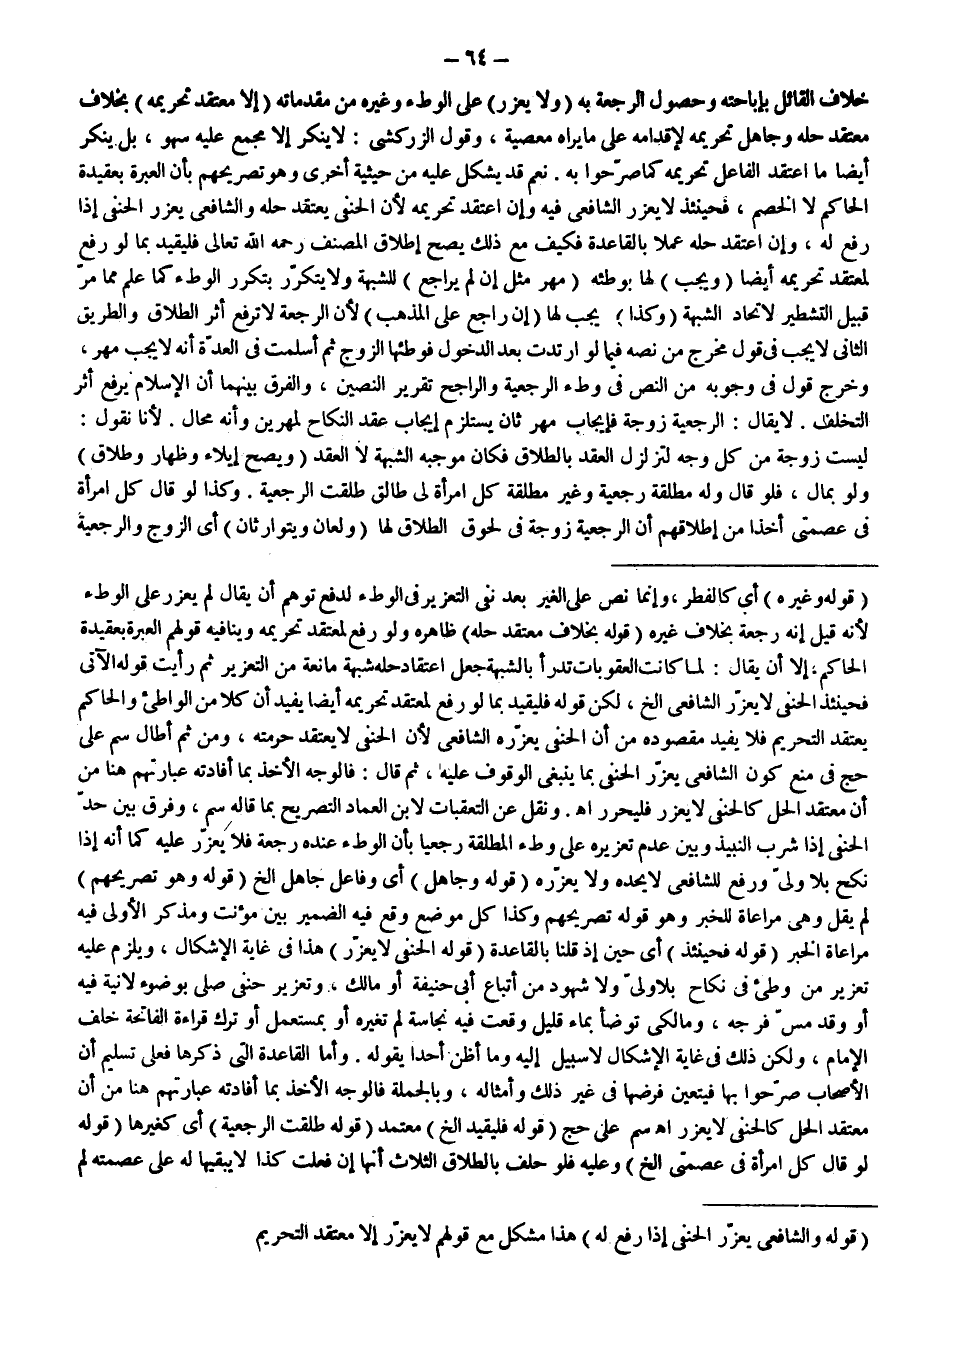 – ٦٤ –
خلاف القائل بإباحته وحصول الرجعة به (ولا يعزر) على الوطء وغيره من مقدماته (إلا معتقد تحريمه) بخلاف
معتقد حله وجاهل تحريمه لإقدامه على مايراه معصية ، وقول الزركشى : لاينكر إلا مجمع عليه سهو ، بل ينكر
أيضا ما اعتقد الفاعل تحريمه كماصرّحوا به . نعم قد يشكل عليه من حيثية أخرى وهو تصريحهم بأن العبرة بعقيدة
الحاكم لا الخصم ، فحينئذ لايعزر الشافعى فيه وإن اعتقد تحريمه لأن الحنفى يعتقد حله والشافعى يعزر الحنفى إذا
رفع له ، وإن اعتقد حله عملا بالقاعدة فكيف مع ذلك يصح إطلاق المصنف رحمه الله تعالى فليقيد بما لو رفع
لمعتقد تحريمه أيضا (ويجب) لها بوطئه (مهر مثل إن لم يراجع) للشبهة ولايتكرّر بتكرر الوطء كما علم مما مرّ
قبيل التشطير لاتحاد الشبهة (وكذا) يجب لها (إن راجع على المذهب) لأن الرجعة لاترفع أثر الطلاق والطريق
الثانى لايجب فى قول مخرج من نصه فيما لو ارتدت بعد الدخول فوطئها الزوج ثم أسلمت فى العدّة أنه لايجب مهر ،
وخرج قول فى وجوبه من النص فى وطء الرجعية والراجح تقرير النصين ، والفرق بينهما أن الإسلام يرفع أثر
التخلف . لايقال : الرجعية زوجة فإيجاب مهر ثان يستلزم إيجاب عقد النكاح لمهرين وأنه محال . لأنا نقول :
ليست زوجة من كل وجه لتزلزل العقد بالطلاق فكان موجبه الشبهة لا العقد (ويصح إيلاء وظهار وطلاق)
ولو بمال ، فلو قال وله مطلقة رجعية وغير مطلقة كل امرأة لى طالق طلقت الرجعية . وكذا لو قال كل امرأة
فى عصمتى أخذا من إطلاقهم أن الرجعية زوجة فى لحوق الطلاق لها (ولعان ويتوارثان) أى الزوج والرجعية
(قوله وغيره) أي كالفطر ، وإنما نص على الغير بعد نفى التعزير فى الوطء لدفع توهم أن يقال لم يعزر على الوطء
لأنه قيل إنه رجعة بخلاف غيره (قوله بخلاف معتقد حله) ظاهره ولو رفع لمعتقد تحريمه وينافيه قولهم العبرة بعقيدة
الحاكم ، إلا أن يقال : لما كانت العقوبات تدرأ بالشبهة جعل اعتقاد حله شبهة مانعة من التعزير ثم رأيت قوله الآتى
فحينئذ الحنفى لايعزّر الشافعى الخ ، لكن قوله فليقيد بما لو رفع لمعتقد تحريمه أيضا يفيد أن كلا من الواطئ والحاكم
يعتقد التحريم فلا يفيد مقصوده من أن الحنفى يعزّره الشافعى لأن الحنفى لايعتقد حرمته ، ومن ثم أطال سم على
حج فى منع كون الشافعى يعزّر الحنفى بما ينبغى الوقوف عليه ، ثم قال : فالوجه الأخذ بما أفادته عبارتهم هنا من
أن معتقد الحل كالحنفى لايعزر فليحرر اه . ونقل عن التعقبات لابن العماد التصريح بما قاله سم ، وفرق بين حدّ
الحنفى إذا شرب النبيذ وبين عدم تعزيره على وطء المطلقة رجعيا بأن الوطء عنده رجعة فلا يعزّر عليه كما أنه إذا
نكح بلا ولىّ ورفع للشافعى لايحده ولا يعزّره (قوله وجاهل) أى وفاعل جاهل الخ (قوله وهو تصريحهم)
لم يقل وهى مراعاة للخبر وهو قوله تصريحهم وكذا كل موضع وقع فيه الضمير بين مؤنث ومذكر الأولى فيه
مراعاة الخبر (قوله فحينئذ) أى حين إذ قلنا بالقاعدة (قوله الحنفى لايعزّر) هذا فى غاية الإشكال ، ويلزم عليه
تعزير من وطئ فى نكاح بلاولىّ ولا شهود من أتباع أبى حنيفة أو مالك ، وتعزير حنفى صلى بوضوء لانية فيه
أو وقد مسّ فرجه ، ومالكى توضأ بماء قليل وقعت فيه نجاسة لم تغيره أو بمستعمل أو ترك قراءة الفاتحة خلف
الإمام ، ولكن ذلك فى غاية الإشكال لاسبيل إليه وما أظن أحدا يقوله . وأما القاعدة التى ذكرها فعلى تسليم أن
الأصحاب صرّحوا بها فيتعين فرضها فى غير ذلك وأمثاله ، وبالجملة فالوجه الأخذ بما أفادته عبارتهم هنا من أن
معتقد الحل كالحنفى لايعزر اه سم على حج (قوله فليقيد الخ) معتمد (قوله طلقت الرجعية) أى كغيرها (قوله
لو قال كل امرأة فى عصمتى الخ) وعليه فلو حلف بالطلاق الثلاث أنها إن فعلت كذا لايبقيها له على عصمته لم
(قوله والشافعى يعزّر الحنفى إذا رفع له) هذا مشكل مع قولهم لايعزّر إلا معتقد التحريم